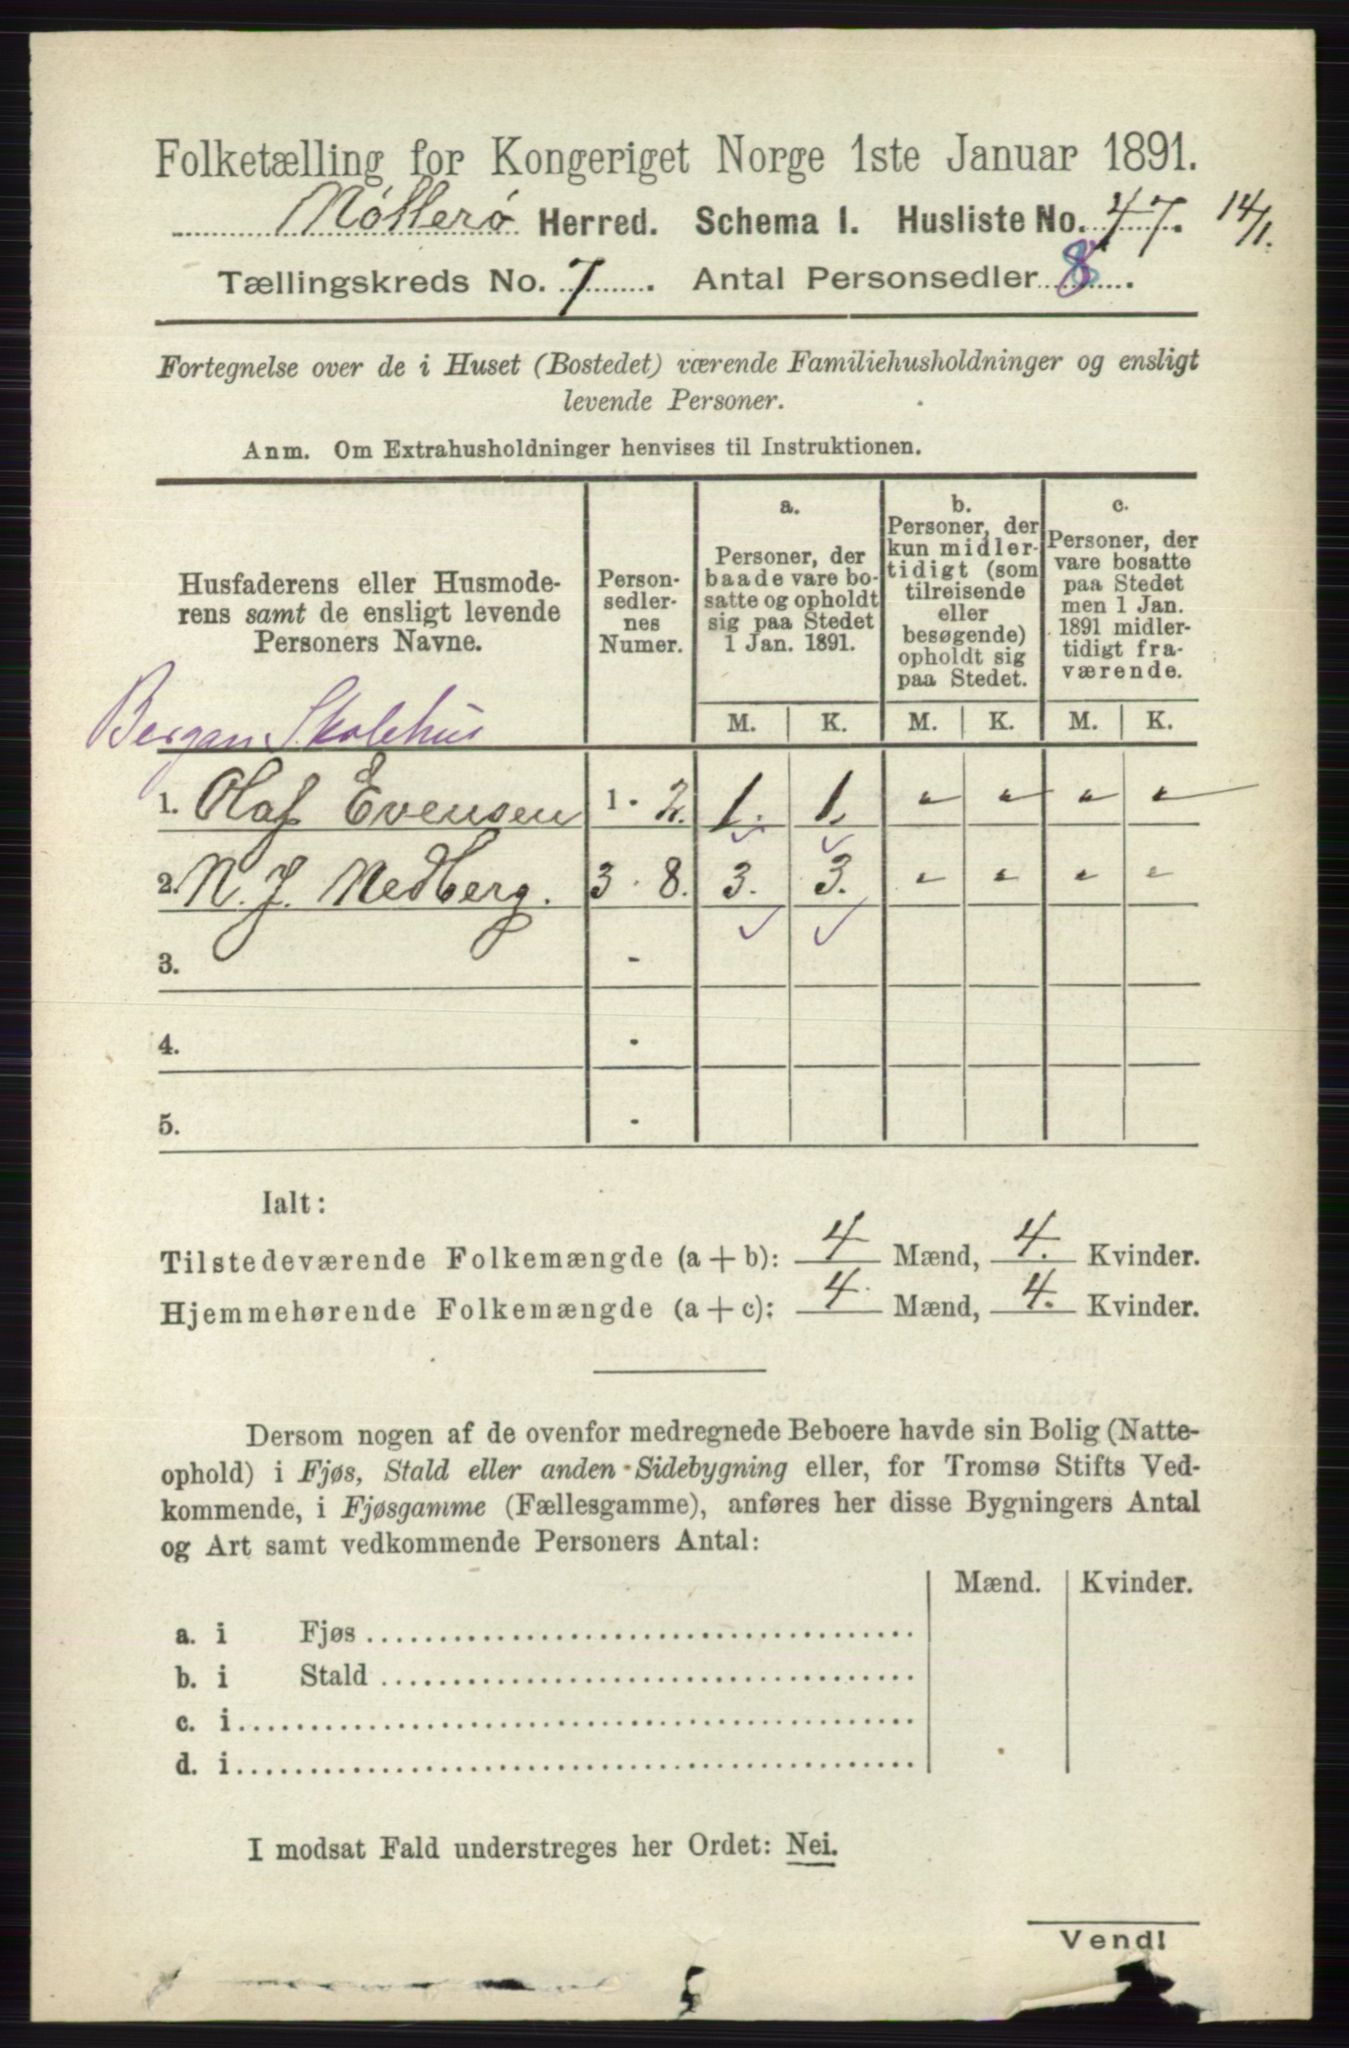 Folketælling for Kongeriget Norge 1ste Januar 1891.
Nøtterø Herred. Schema I. Husliste No. 47. 14/1.
Tællingskreds No. 7. Antal Personsedler 8.
Fortegnelse over de i Huset (Bostedet) værende Familiehusholdninger og ensligt
levende Personer.
Anm. Om Extrahusholdninger henvises til Instruktionen.
Husfaderens eller Husmode-
rens samt de ensligt levende
Personers Navne.
Person-
sedler-
nes
Numer.
a.
Personer, der
baade vare bo-
satte og opholdt
sig paa Stedet
1 Jan. 1891.
b.
Personer, der
kun midler-
tidigt (som
tilreisende
eller
besøgende)
opholdt sig
paa Stedet.
c.
Personer, der
vare bosatte
paa Stedet
men 1 Jan.
1891 midler-
tidigt fra-
værende.
M. K. M. K. M. K.
Bergan Skolehus
1. Olaf Evensen 1 - 2. 1. 1. " " " "
2. N. J. Medberg. 3 - 8. 3. 3. " " " "
3. -
4. -
5. -
Ialt:
Tilstedeværende Folkemængde (a + b): 4 Mænd, 4. Kvinder.
Hjemmehørende Folkemængde (a + c): 4. Mænd, 4. Kvinder.
Dersom nogen af de ovenfor medregnede Beboere havde sin Bolig (Natte-
ophold) i Fjøs, Stald eller anden Sidebygning eller, for Tromsø Stifts Ved-
kommende, i Fjøsgamme (Fællesgamme), anføres her disse Bygningers Antal
og Art samt vedkommende Personers Antal:
Mænd. Kvinder.
a. i Fjøs
b. i Stald
c. i
d. i
I modsat Fald understreges her Ordet: Nei.
Vend!